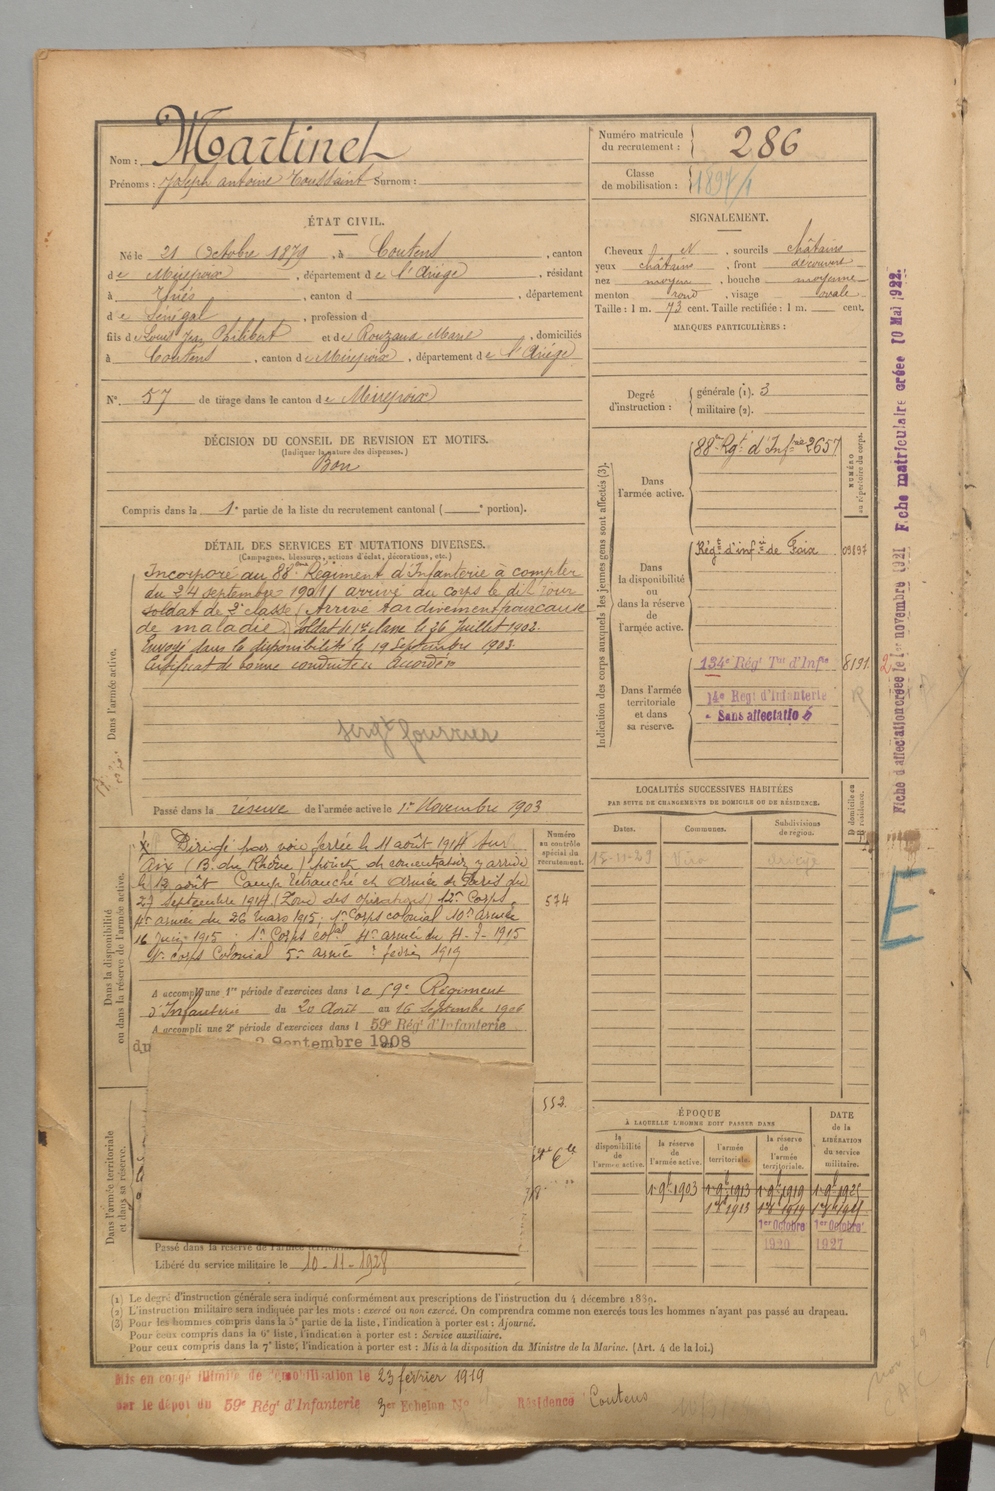 Nom : Martinet
Prénoms : Joseph Antoine Toussaint Surnom :
ÉTAT CIVIL.
Né le 21 Octobre 1879, à Coutens, canton
de Mirepoix, département de l'Ariège, résidant
à Thiès, canton d , département
de Sénégal, profession d
fils de Louis Jean Philibert et de Rouzaud Marie, domiciliés
à Coutens, canton de Mirepoix, département de l'Ariège
N° 57 de tirage dans le canton de Mirepoix
DÉCISION DU CONSEIL DE REVISION ET MOTIFS.
(Indiquer la nature des dispenses.)
Bon
Compris dans la 1e partie de la liste du recrutement cantonal ( e portion).
DÉTAIL DES SERVICES ET MUTATIONS DIVERSES.
(Campagnes, blessures, actions d'éclat, décorations, etc.)
Dans l'armée active.
Incorporé au 88ème Régiment d'Infanterie à compter
du 24 septembre 1901, arrivé au corps le dit jour
soldat de 2e classe (Arrivé tardivement pour cause
de maladie) Soldat de 1re classe le 26 Juillet 1902.
Envoyé dans la disponibilité le 19 Septembre 1903.
Certificat de bonne conduite "Accordé"
sergt fourrier
Passé dans la réserve de l'armée active le 1er Novembre 1903
Dans la disponibilité
ou dans la réserve de l'armée active.
Dirigé par voie ferrée le 11 août 1914 sur
Aix (B. du Rhône) point de concentration y arrivé
le 13 août Camp retranché et Armée de Paris du
27 Septembre 1914 (Zone des opérations) 12e Corps
4e armée du 26 mars 1915. 1er Corps colonial 10e Armée
16 Juin 1915 1er Corps colal 4e armée du 4-7-1915
corps Colonial 5e armée février 1919
Numéro
au contrôle
spécial du
recrutement.
574
A accompli une 1re période d'exercices dans le 59e Régiment
d'Infanterie du 20 Août au 16 Septembre 1906
A accompli une 2e période d'exercices dans l 59e Régt d'Infanterie
du 2 Septembre 1908
Dans l'armée territoriale
et dans sa réserve.
552
Passé dans la réserve de l'armée territoriale
Libéré du service militaire le 10-11-1928
Numéro matricule
du recrutement : 286
Classe
de mobilisation : 1897/1
SIGNALEMENT.
Cheveux N, sourcils châtains
yeux châtains, front découvert
nez moyen, bouche moyenne
menton rond, visage ovale
Taille : 1 m. 73 cent. Taille rectifiée : 1 m. cent.
MARQUES PARTICULIÈRES :
Degré
d'instruction :
générale (1). 3
militaire (2).
Indication des corps auxquels les jeunes gens sont affectés (3).
NUMÉRO
au répertoire du corps.
Dans
l'armée active.
88e Rgt d'Infrie 2657
Dans
la disponibilité
ou
dans la réserve
de
l'armée active.
Régt d'infie de Foix 09197
Dans l'armée
territoriale
et dans
sa réserve.
134e Régt Tal d'Infie 8191
14e Régt d'Infanterie
Sans affectation
LOCALITÉS SUCCESSIVES HABITÉES
PAR SUITE DE CHANGEMENTS DE DOMICILE OU DE RÉSIDENCE.
Dates. Communes. Subdivisions
de région.
D domicile ou
R résidence.
15-11-29 Ariège
ÉPOQUE
À LAQUELLE L'HOMME DOIT PASSER DANS
DATE
de la
LIBÉRATION
du service
militaire.
la
disponibilité
de
l'armée active.
la réserve
de
l'armée active.
l'armée
territoriale.
la réserve
de
l'armée
territoriale.
1er 9bre 1903 1er 9bre 1913 1er 9bre 1919 1er 9bre 1925
1913 1919
1er Octobre 1er Octobre
1920 1927
(1) Le degré d'instruction générale sera indiqué conformément aux prescriptions de l'instruction du 4 décembre 1889.
(2) L'instruction militaire sera indiquée par les mots : exercé ou non exercé. On comprendra comme non exercés tous les hommes n'ayant pas passé au drapeau.
(3) Pour les hommes compris dans la 5e partie de la liste, l'indication à porter est : Ajourné.
Pour ceux compris dans la 6e liste, l'indication à porter est : Service auxiliaire.
Pour ceux compris dans la 7e liste, l'indication à porter est : Mis à la disposition du Ministre de la Marine. (Art. 4 de la loi.)
Mis en congé illimité de démobilisation le 23 février 1919
par le dépôt du 59e Régt d'Infanterie 3er Echelon No Résidence Coutens
Fiche d'affectation créée le 1er novembre 1921 Fiche matriculaire créée 10 Mai 1922.
E